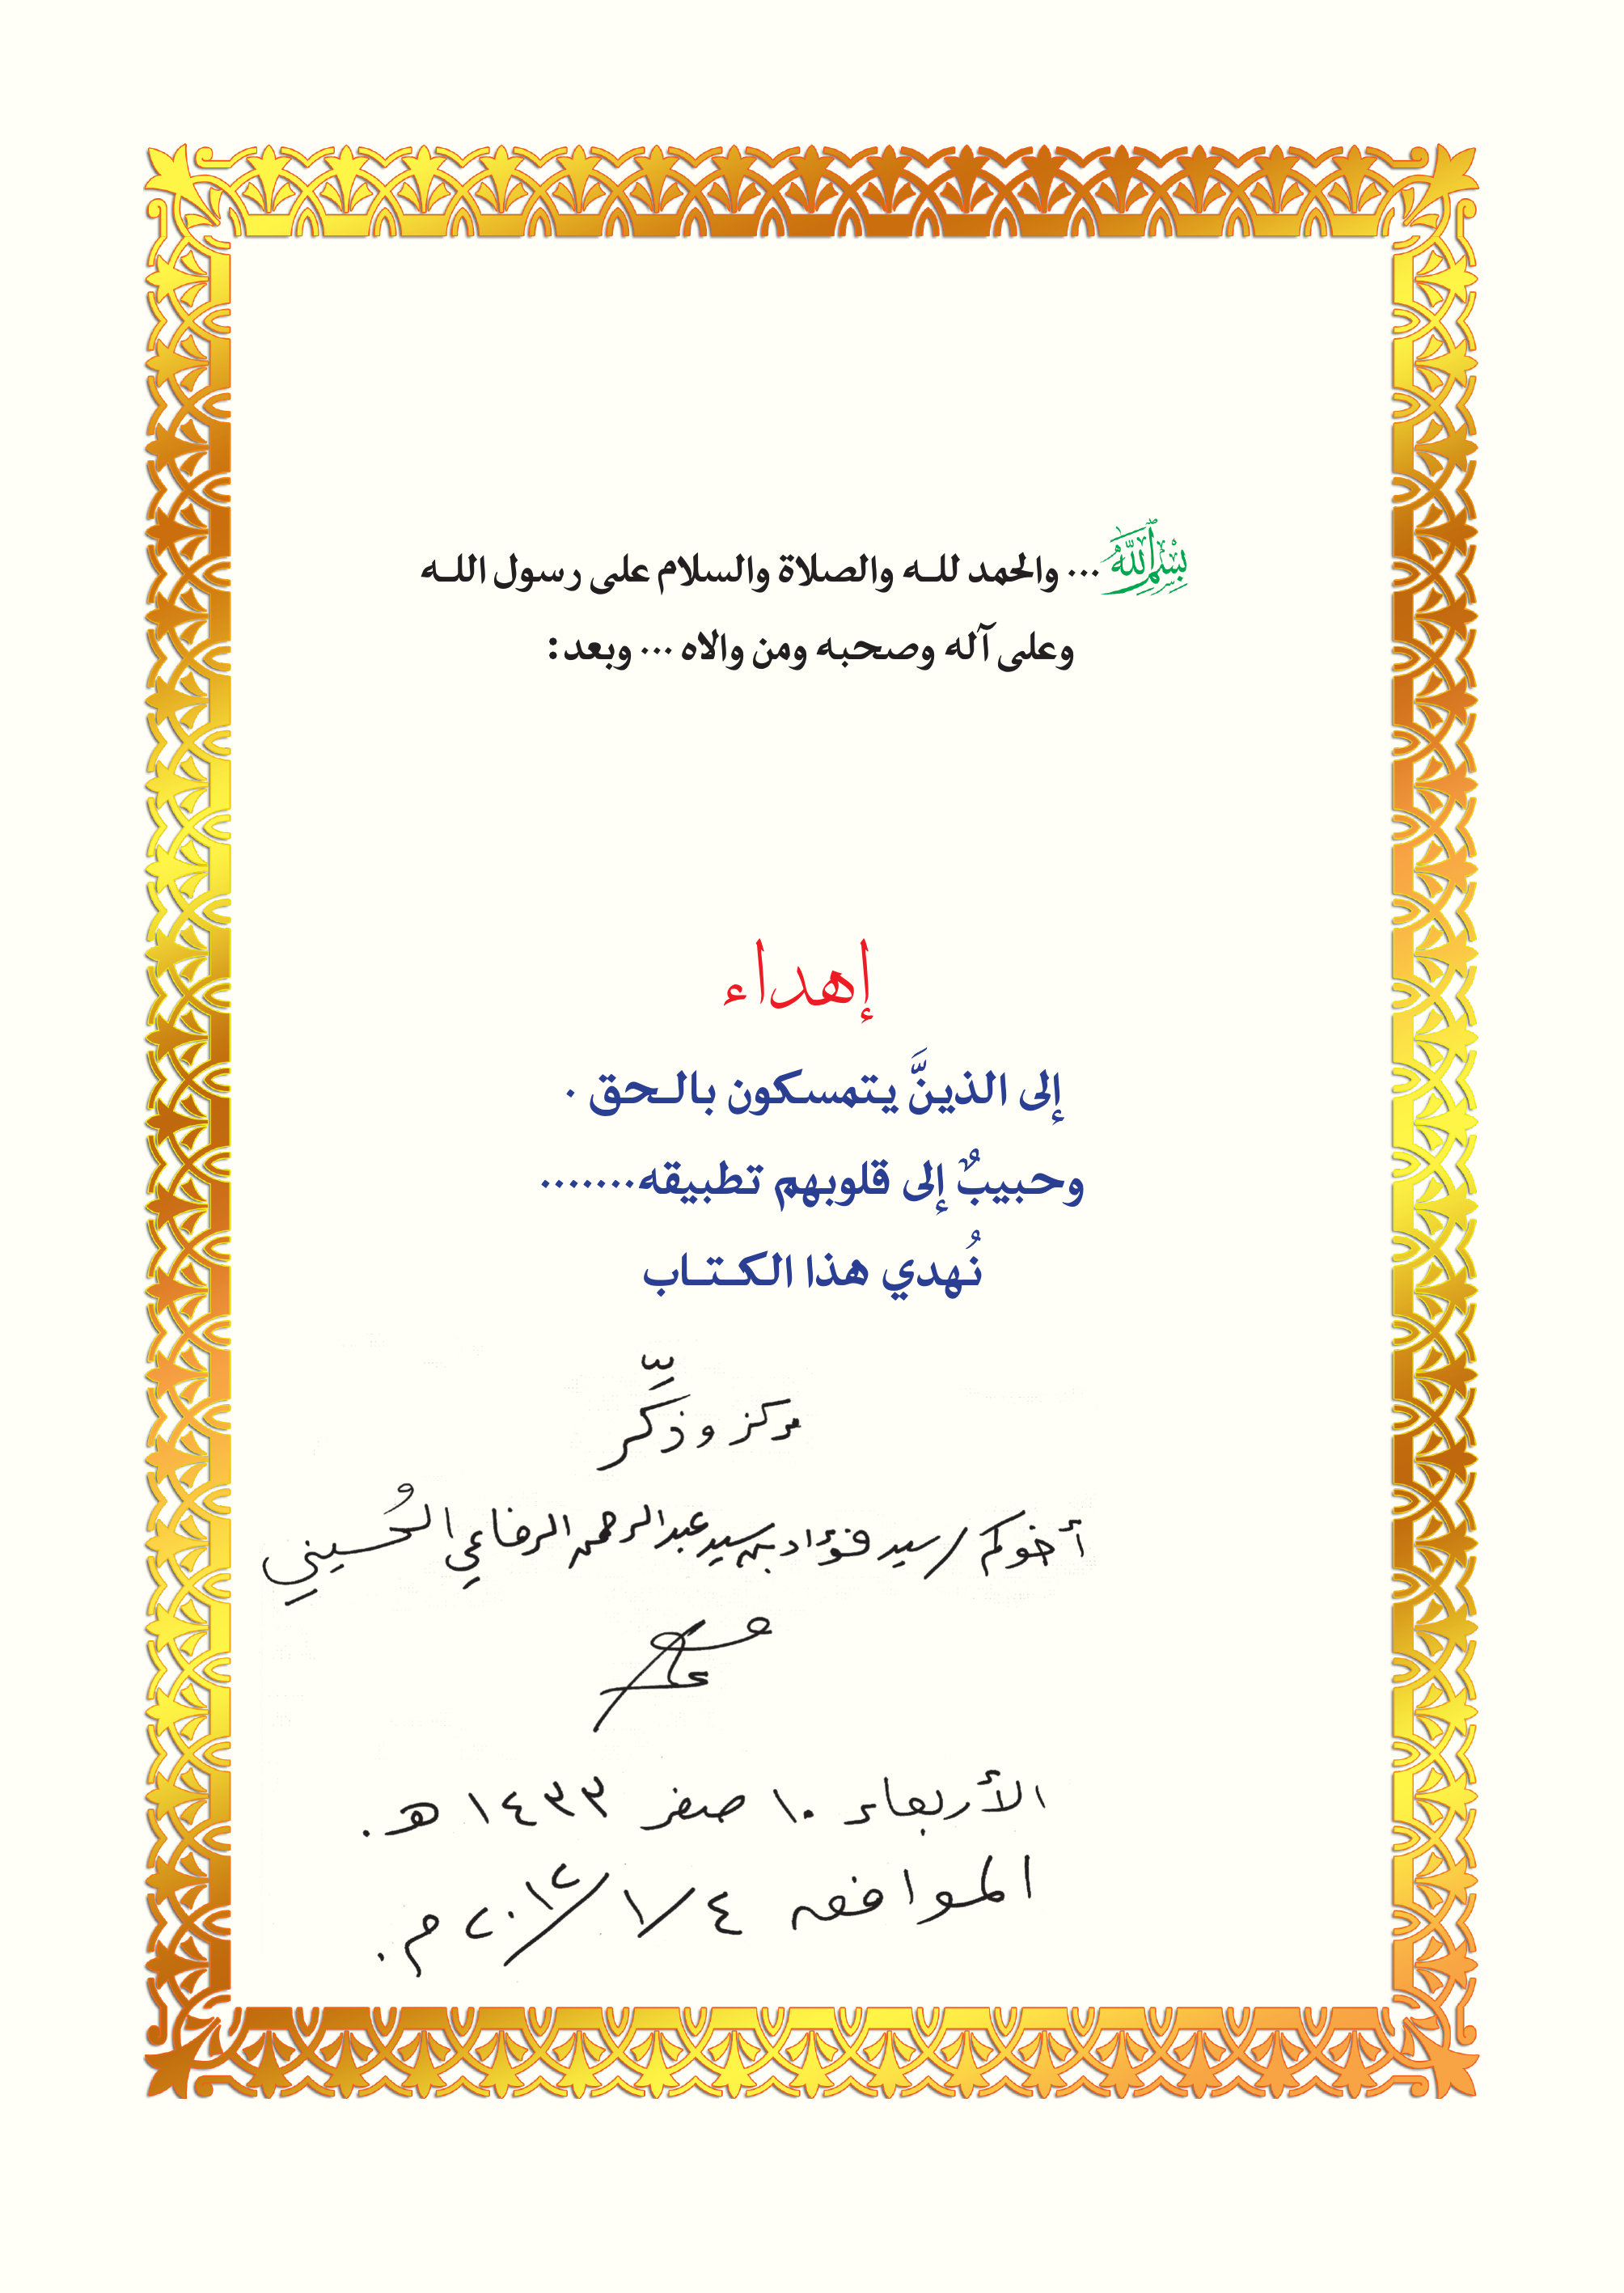 بسم الله ... والحمد للـه والصلاة والسلام على رسول اللـه
وعلى آله وصحبه ومن والاه ... وبعد:
إهداء
إلى الذينَّ يتمسكون بالـحق .
وحبيبٌ إلى قلوبهم تطبيقه.......
نُهدي هذا الكـتـاب
مركز وذكِّر
أخوكم / سيد فؤاد بن سيد عبدالرحمن الرفاعي الحُسيني
الأربعاء ١٠ صفر ١٤٣٣ هـ.
الموافق ٤/١/٢٠١٢ م.